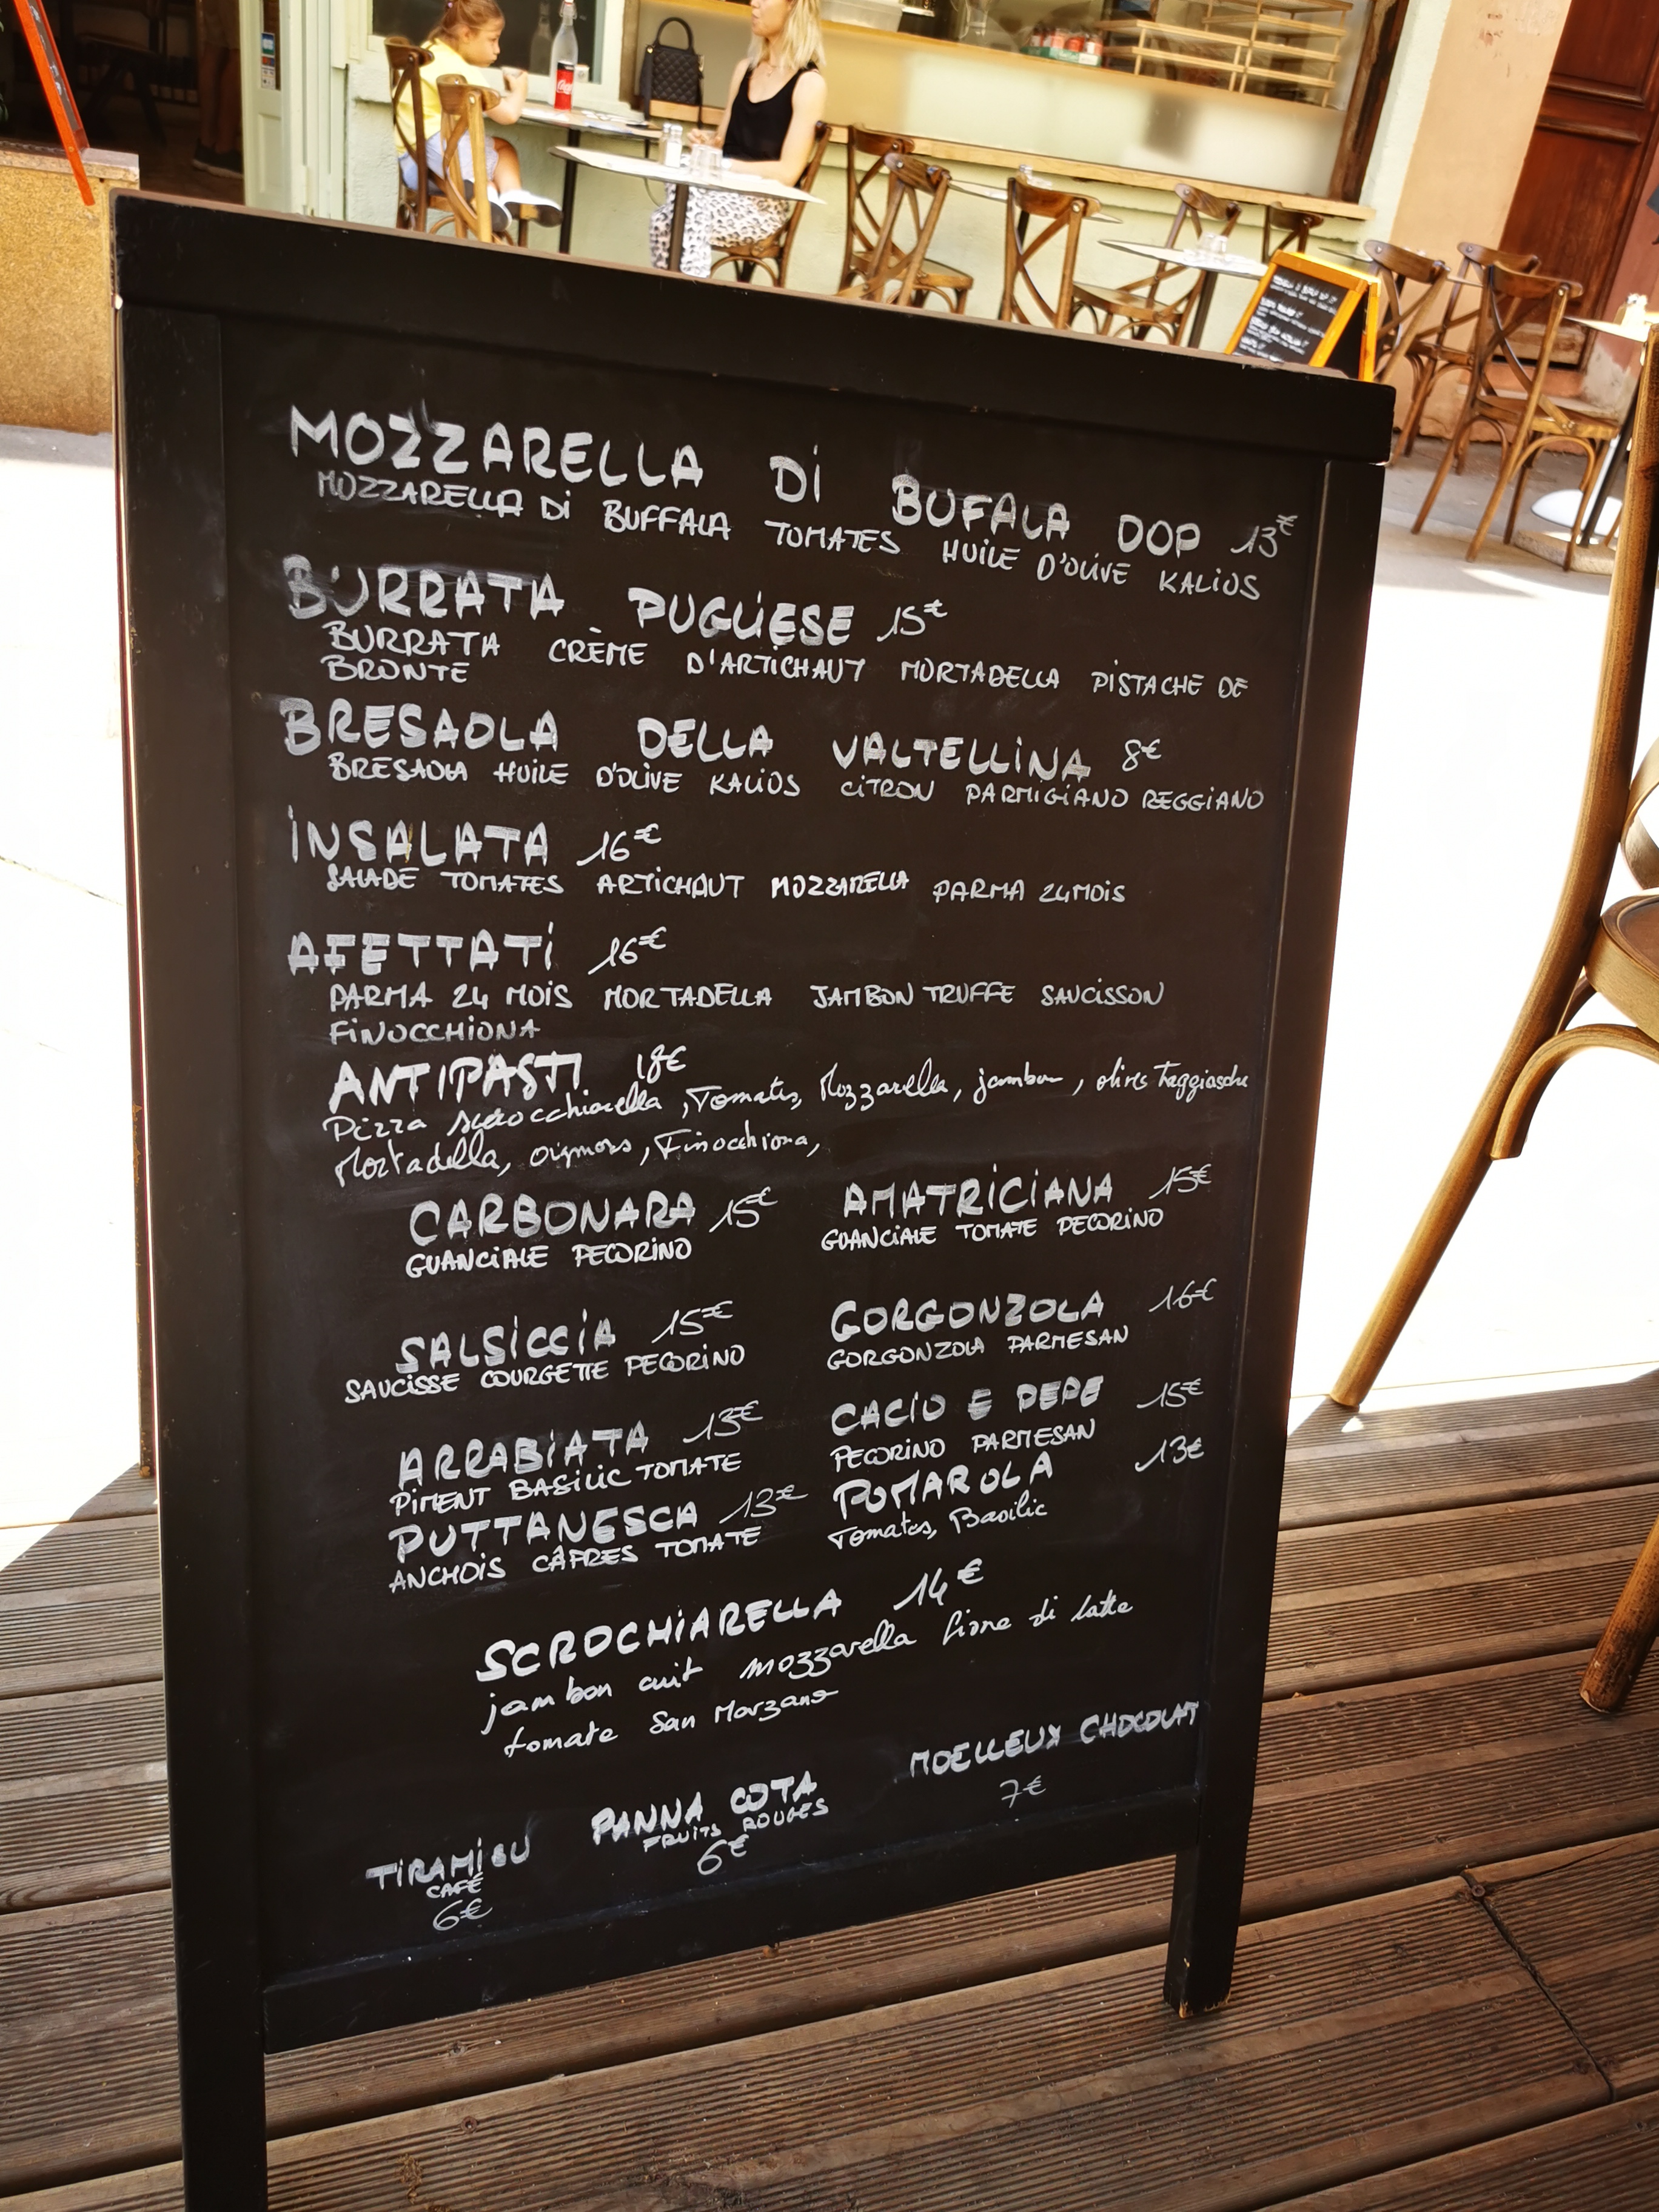 MOZZARELLA Di BUFALA DOP 13€
MOZZARELLA Di BUFFALA TOMATES HUiLE D'OLiVE KALiOS
BURRATA PUGLiESE 15€
BURRATA CRÈME D'ARTiCHAUT MORTADELLA PiSTACHE DE
BRONTE
BRESAOLA DELLA VALTELLiNA 8€
BRESAOLA HUiLE D'OLiVE KALiOS CiTRON PARMiGiANO REGGiANO
iNSALATA 16€
SALADE TOMATES ARTiCHAUT MOZZARELLA PARMA 24 MOiS
AFETTATi 16€
PARMA 24 MOiS MORTADELLA JAMBON TRUFFE SAUCiSSON
FiNOCCHiONA
ANTIPASTI 18€
Pizza scrocchiarella, Tomates, Mozzarella, jambon, olives Taggiasche
Mortadella, oignons, Finocchiona,
CARBONARA 15€
GUANCiALE PECORiNO
AMATRiCiANA 15€
GUANCiALE TOMATE PECORiNO
SALSiCCiA 15€
SAUCiSSE COURGETTE PECORiNO
GORGONZOLA 16€
GORGONZOLA PARMESAN
ARRABiATA 13€
PiMENT BASiLiC TOMATE
CACiO E PEPE 15€
PECORiNO PARMESAN
PUTTANESCA 13€
ANCHOiS CÂPRES TOMATE
POMAROLA 13€
Tomates, Basilic
SCROCHiARELLA 14€
jambon cuit mozzarella fiore di latte
tomate San Marzano
TiRAMiSU
CAFÉ
6€
PANNA COTA
FRUiTS ROUGES
6€
MOELLEUX CHOCOLAT
7€